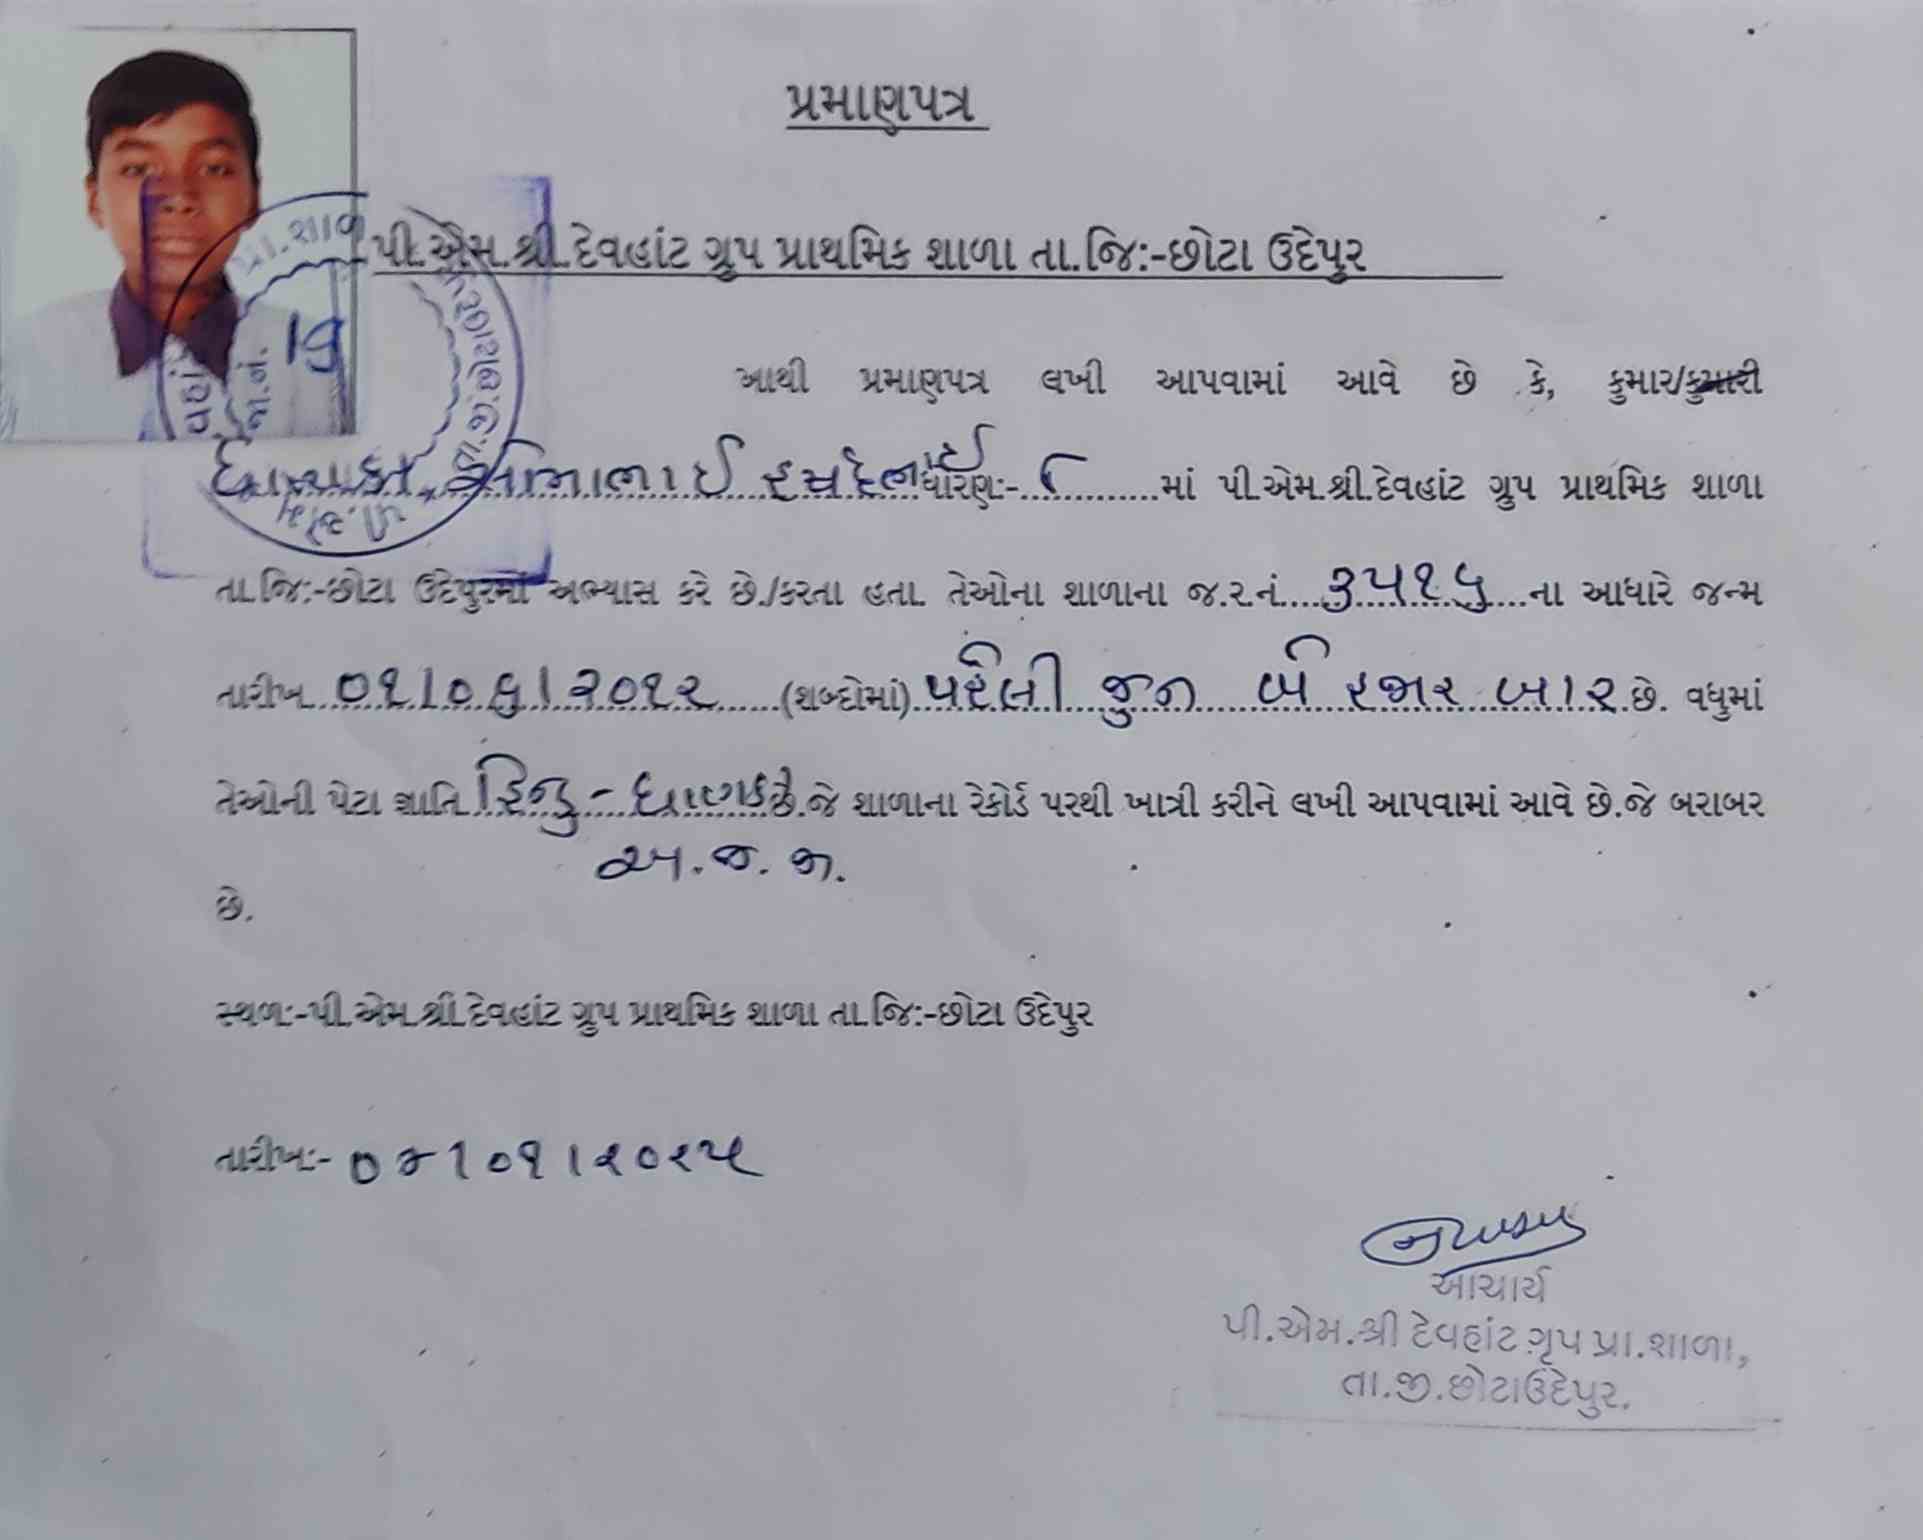 પ્રમાણપત્ર
પી.એમ.શ્રી.દેવહાંટ ગ્રુપ પ્રાથમિક શાળા તા.જિ:-છોટા ઉદેપુર
આથી પ્રમાણપત્ર લખી આપવામાં આવે છે કે, કુમાર/કુમારી
ધારણ:- ૮ માં પી.એમ.શ્રી.દેવહાંટ ગ્રુપ પ્રાથમિક શાળા
તા.જિ:-છોટા ઉદેપુરમાં અભ્યાસ કરે છે./કરતા હતા. તેઓના શાળાના જ.ર.નં....૩૫૧૬....ના આધારે જન્મ
તારીખ ૦૧/૦૬/૨૦૧૨ (શબ્દોમાં) પહેલી જુન બે હજાર બાર છે. વધુમાં
તેઓની પેટા જ્ઞાતિ હિન્દુ - ધાણકા છે.જે શાળાના રેકોર્ડ પરથી ખાત્રી કરીને લખી આપવામાં આવે છે.જે બરાબર
અ.જ.જા.
છે.
સ્થળ:-પી.એમ.શ્રી.દેવહાંટ ગ્રુપ પ્રાથમિક શાળા તા.જિ:-છોટા ઉદેપુર
તારીખ:- ૦૪/૦૧/૨૦૨૫
આચાર્ય
પી.એમ.શ્રી દેવહાંટ ગૃપ પ્રા.શાળા,
તા.જી.છોટાઉદેપુર.